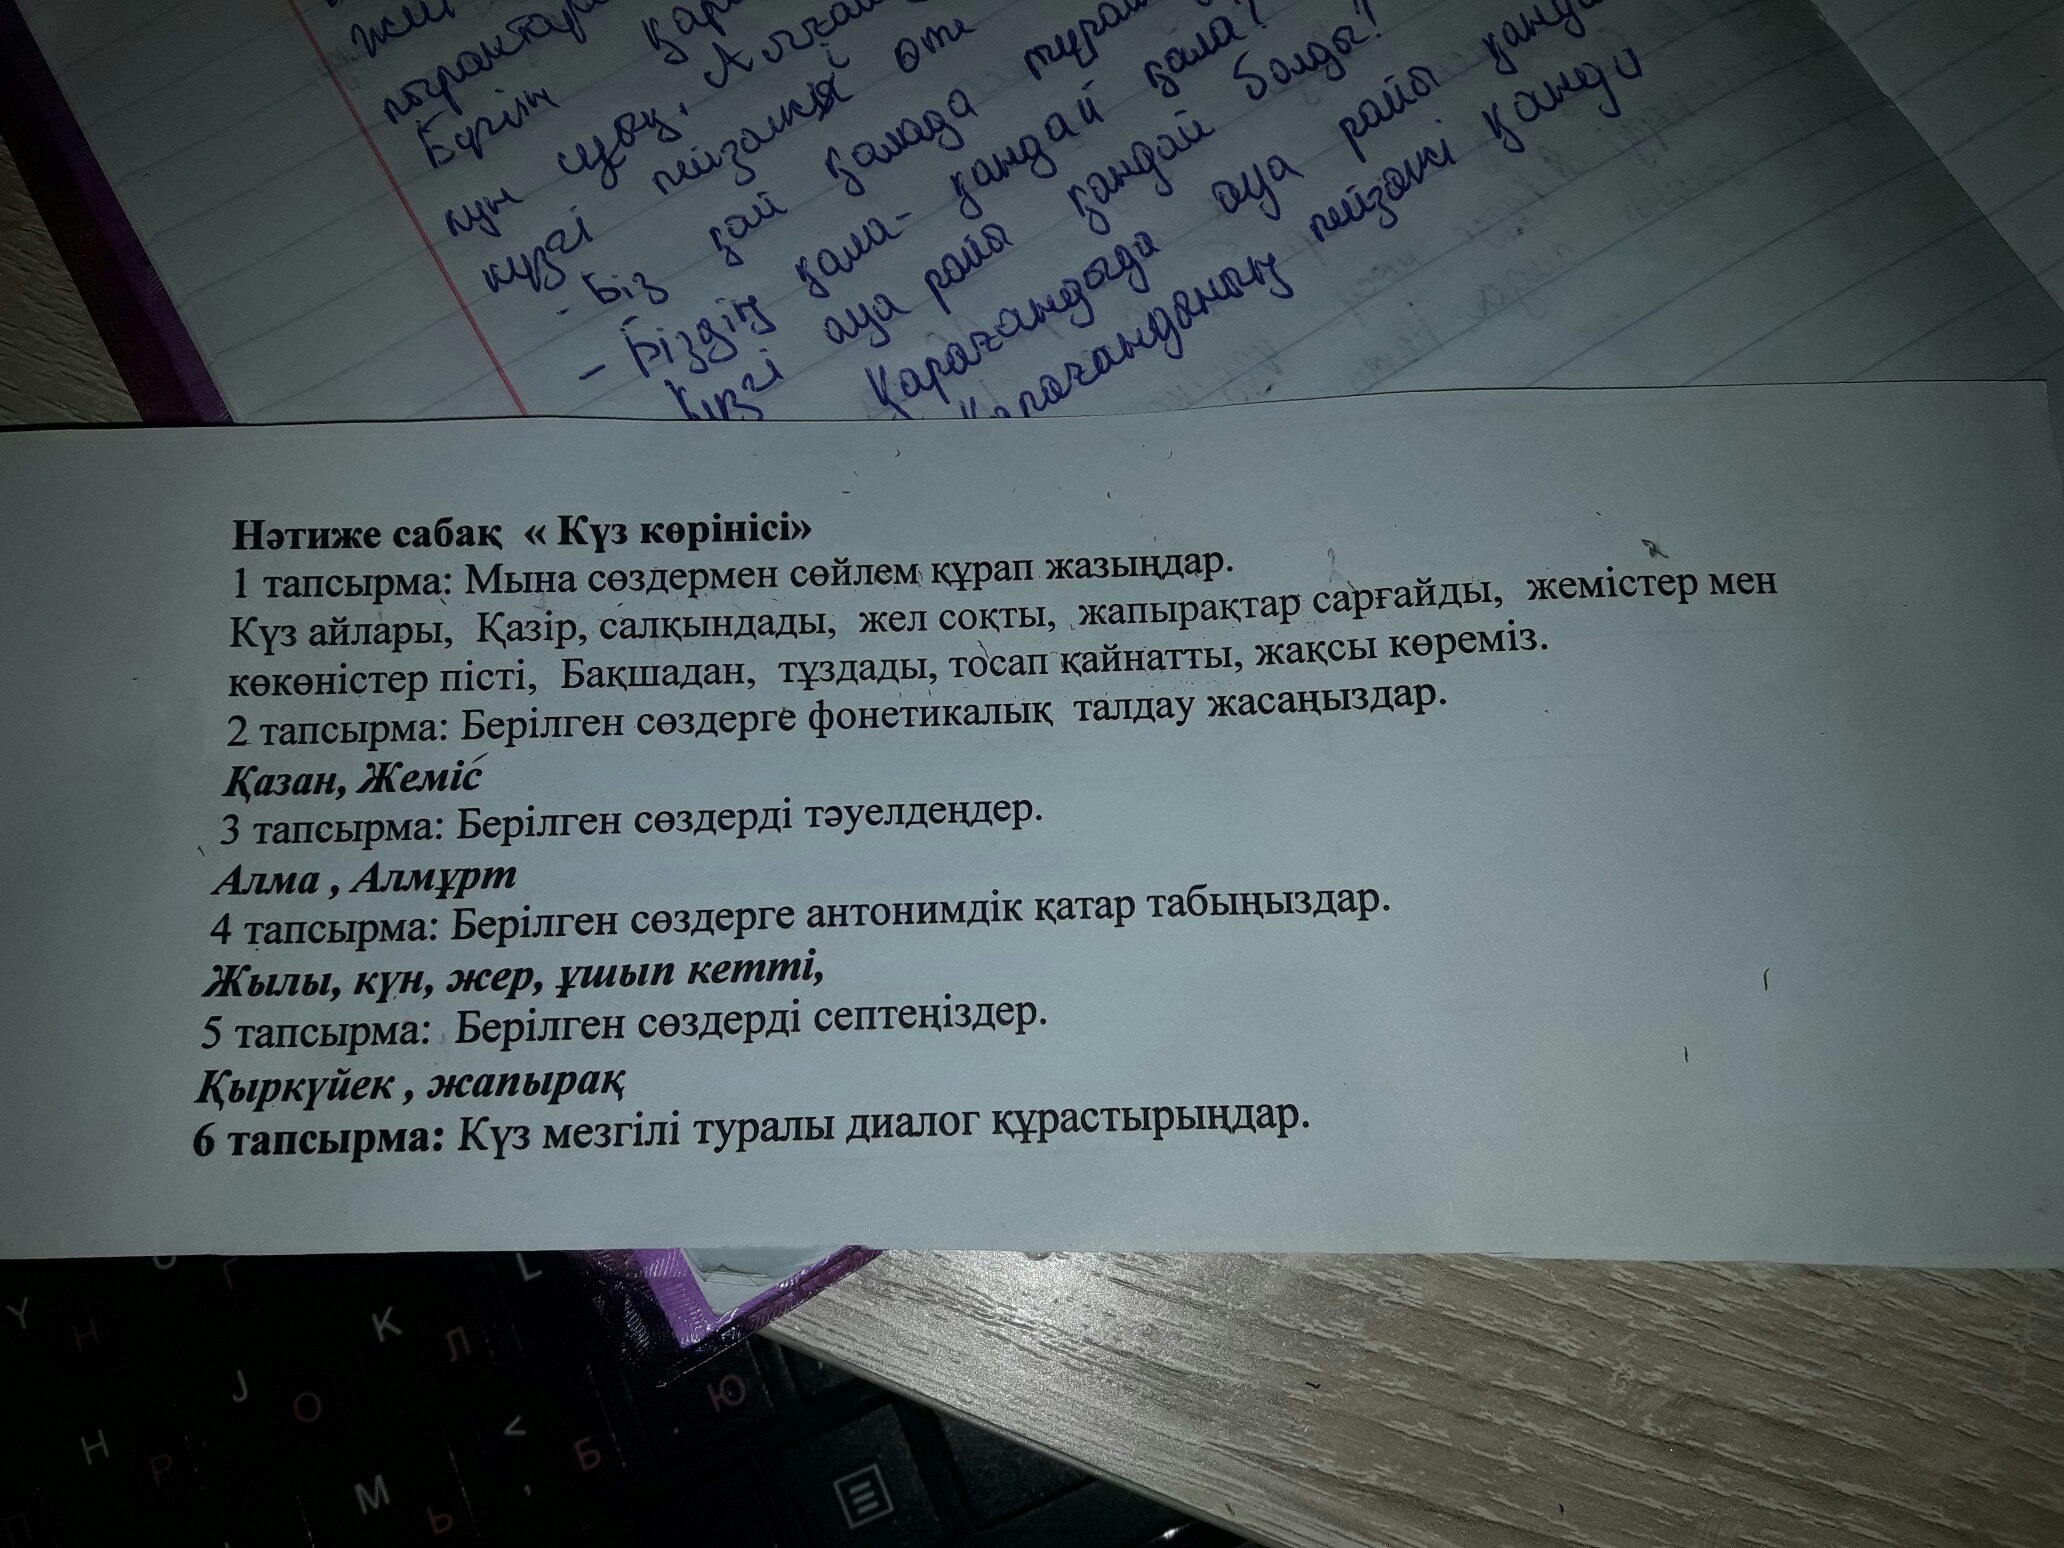 Бүгін
күн суық.
күзгі пейзажы өте
- Біз қай қалада тұрам
- Біздің қала - қандай қала?
Күзгі ауа райы қандай болды?
Қарағандыда ауа райы қанд
Қарағандының пейзажі қанда
Нәтиже сабақ « Күз көрінісі»
1 тапсырма: Мына сөздермен сөйлем құрап жазыңдар.
Күз айлары, Қазір, салқындады, жел соқты, жапырақтар сарғайды, жемістер мен
көкөністер пісті, Бақшадан, тұздады, тосап қайнатты, жақсы көреміз.
2 тапсырма: Берілген сөздерге фонетикалық талдау жасаңыздар.
Қазан, Жеміс
3 тапсырма: Берілген сөздерді тәуелдеңдер.
Алма , Алмұрт
4 тапсырма: Берілген сөздерге антонимдік қатар табыңыздар.
Жылы, күн, жер, ұшып кетті,
5 тапсырма: Берілген сөздерді септеңіздер.
Қыркүйек , жапырақ
6 тапсырма: Күз мезгілі туралы диалог құрастырыңдар.
Y Н Г L
K Л
J О Ю
H Р < Б
M Ь ,